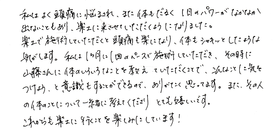 私はよく頭痛に悩まされ、また体もだるく1日のパワーがなかなか
出ないこともあり、楽生に来させていただくようになりました。
楽生で施術していただくと頭痛も楽になり、体もうっせっしたような
気がします。私は1か月に1回のペースで施術していただき、その時に
山藤さんに体のいろいろなことを教えていただくことで、次はここに気を
つけよう、と意識もすることができるので、ありがたく思ってます。また、その人
の体のことについて一番に考えてくださり とても嬉しいです。
これからも楽生に行くことを楽しみにしています!